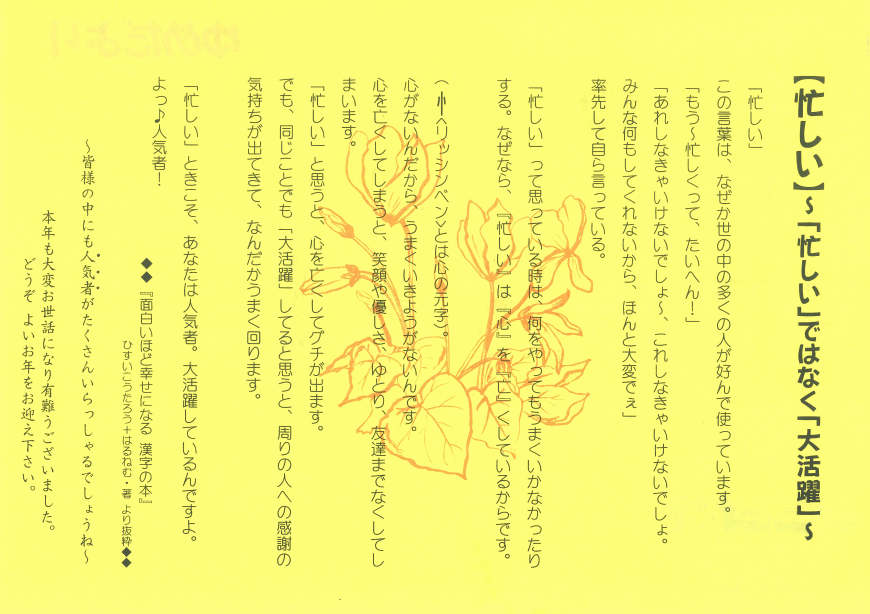 【忙しい】～「忙しい」ではなく「大活躍」～
「忙しい」
この言葉は、なぜか世の中の多くの人が好んで使っています。
「もう～忙しくって、たいへん！」
「あれしなきゃいけないでしょ～、これしなきゃいけないでしょ。
みんな何もしてくれないから、ほんと大変でぇ」
率先して自ら言っている。
「忙しい」って思っている時は、何をやってもうまくいかなかったり
する。なぜなら、『忙しい』は『心』を『亡』くしているからです。
（忄〈リッシンベン〉とは心の元字）。
心がないんだから、うまくいきようがないんです。
心を亡くしてしまうと、笑顔や優しさ、ゆとり、友達までなくしてし
まいます。
「忙しい」と思うと、心を亡くしてグチが出ます。
でも、同じことでも「大活躍」してると思うと、周りの人への感謝の
気持ちが出てきて、なんだかうまく回ります。
「忙しい」ときこそ、あなたは人気者。大活躍しているんですよ。
よっ♪人気者！
◆◆『面白いほど幸せになる 漢字の本』
ひすいこうたろう＋はるねむ・著 より抜粋◆◆
～皆様の中にも人気者がたくさんいらっしゃるでしょうね～
本年も大変お世話になり有難うございました。
どうぞ よいお年をお迎え下さい。